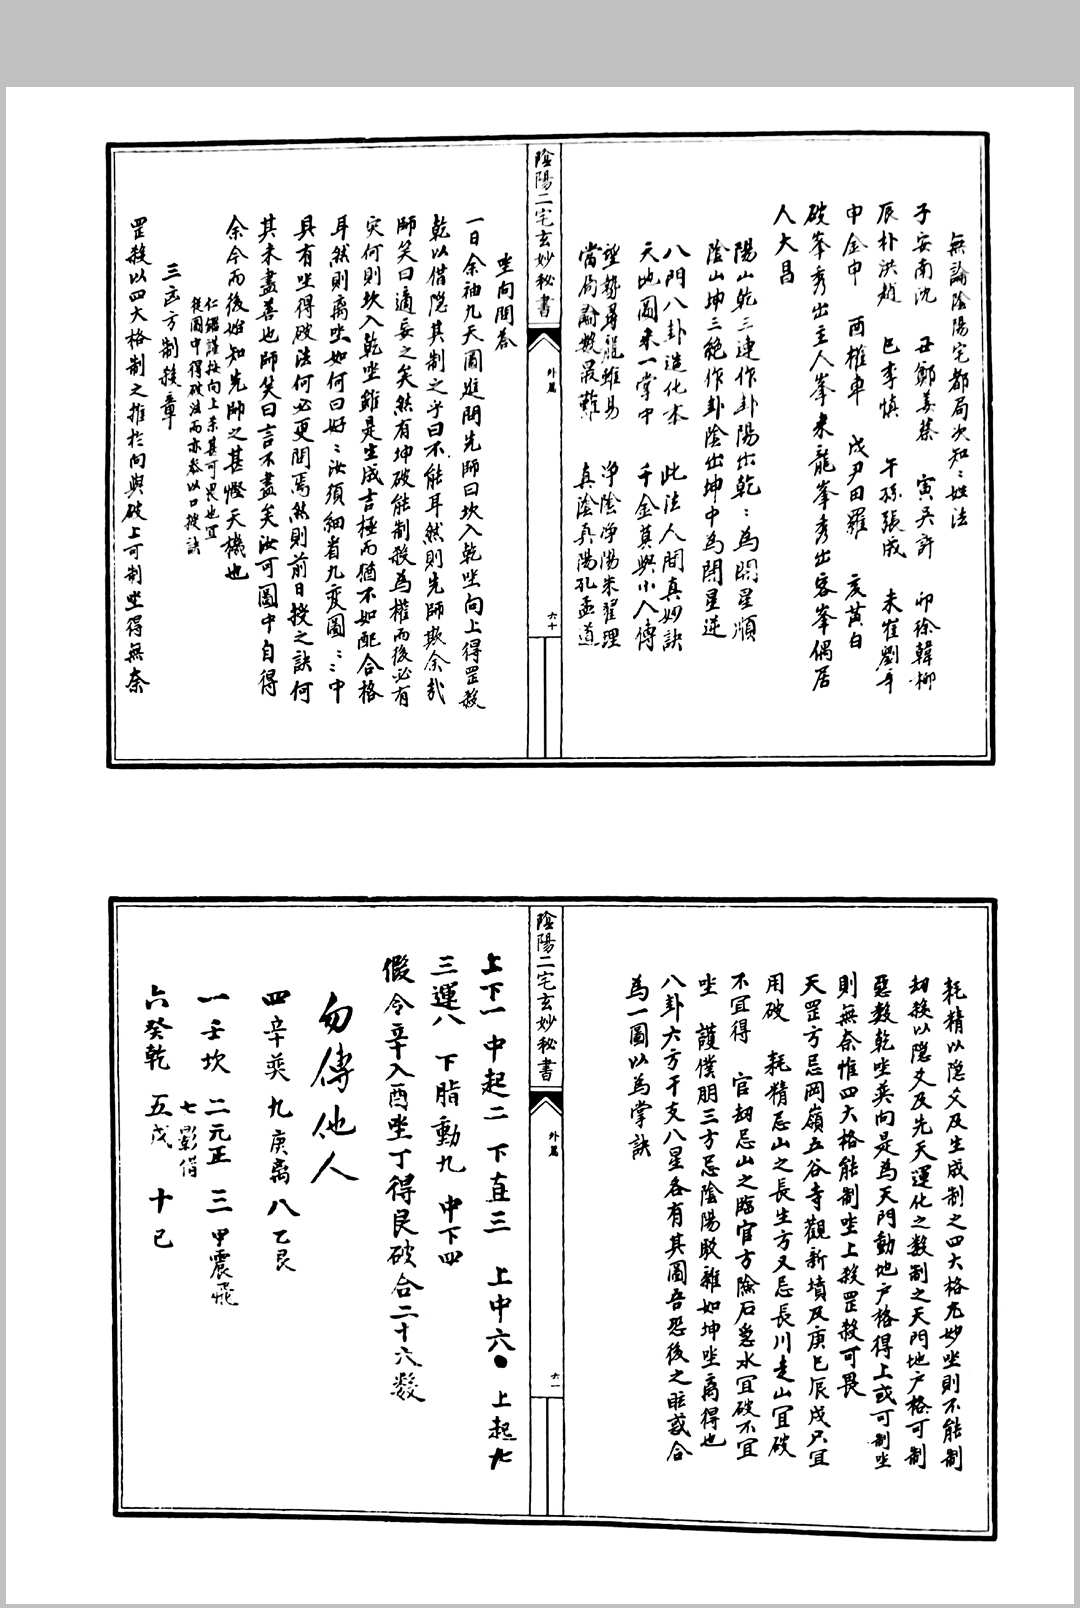 無論陰陽宅都局次知〻姓法
子安南沈 丑鄭姜蔡 寅吳許 卯徐韓柳
辰朴洪趙 巳李愼 午孫張成 未崔劉辛
申金申 酉權車 戌尹田羅 亥黃白
破峯秀出主人峯來龍峯秀出客峯偶居
人大昌
陽山乾三連作卦陽出乾〻為關星順
陰山坤三絶作卦陰出坤中為關星逆
八門八卦造化本 此法人間真妙訣
天地圖來一掌中 千金莫與小人傳
望勢尋龍雖易 淨陰淨陽朱翟理
當局論數最難 真陰真陽孔孟道
陰陽二宅玄妙秘書
外篇
六十
坐向問答
一日余袖九天圖進問先師曰坎入乾坐向上得罡殺
乾以借隱其制之乎曰不能耳然則先師欺余哉
師笑曰適妄之矣然有坤破能制殺為權而後必有
灾何則坎入乾坐雖是生成吉極而猶不如配合格
耳然則离坐如何曰好〻汝須細省九変圖〻〻中
具有坐得破法何必更問焉然則前日授之訣何
其未盡善也師笑曰言不盡矣汝可圖中自得
余今而後始知先師之甚慳天機也
仁鑑謹按向上杀甚可畏也宜
從圖中得破法而亦叅以口授訣
三匹方制殺章
罡殺以四大格制之推於向與破上可制坐得無奈
耗精以隐爻及生成制之四大格尤妙坐則不能制
劫殺以隐爻及先天運化之数制之天門地户格可制
惡數乾坐巽向是為天門動地户格得上或可制坐
則無奈惟四大格能制坐上殺罡殺可畏
天罡方忌岡嶺五谷寺觀新墳及庚巳辰戌只宜
用破 耗精忌山之長生方又忌長川走山宜破
不宜得 官劫忌山之臨官方險石急水宜破不宜
坐 護僕朋三方忌陰陽駁雜如坤坐离得也
八卦六方干支八星各有其圖吾恐後之眩惑合
為一圖以為掌訣
陰陽二宅玄妙秘書
外篇
六一
上下一 中起二 下直三 上中六 上起七
三運八 下脂動九 中下四
假令辛入酉坐丁得艮破合二十六数
勿傳他人
四辛巽 九庚离 八乙艮
一壬坎 二元正 三甲震飛
七影借
六癸乾 五戊 十己